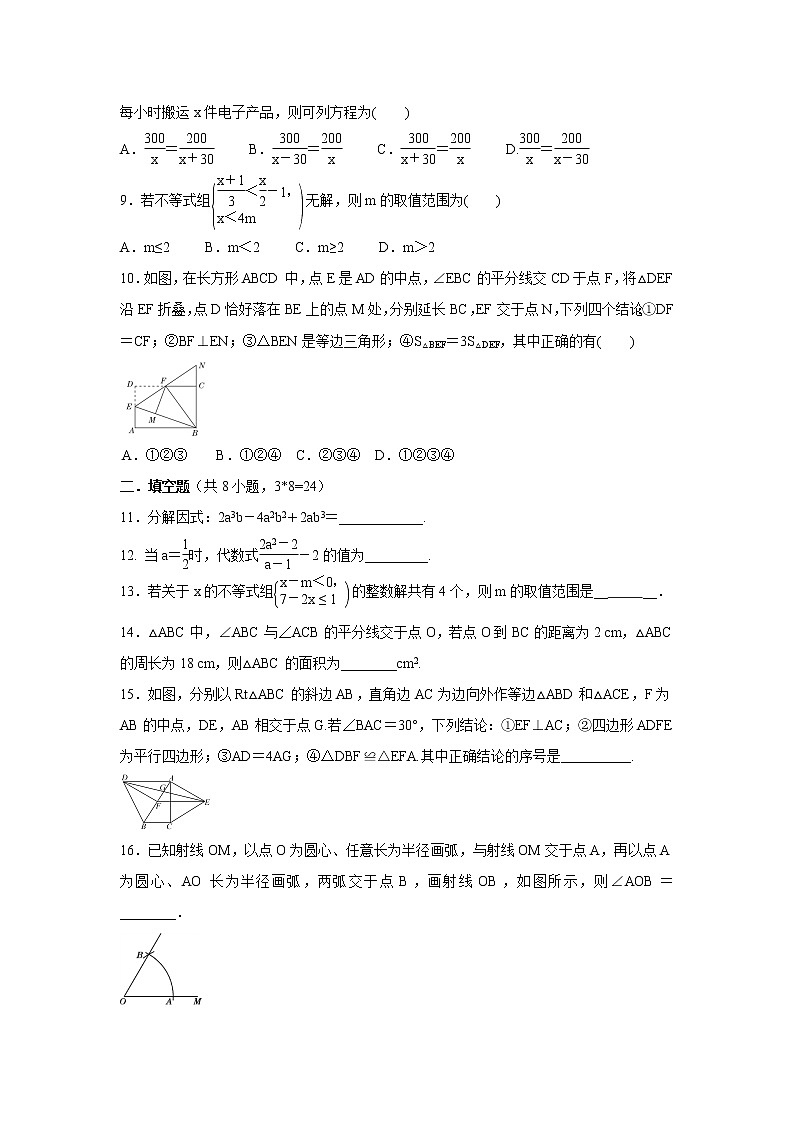 每小时搬运 x 件电子产品，则可列方程为(　　)
A．300/x＝200/(x＋30)　B．300/(x－30)＝200/x　C．300/(x＋30)＝200/x　D.300/x＝200/(x－30)
9．若不等式组{(x＋1)/3＜x/2－1，x＜4m)无解，则 m 的取值范围为(　　)
A．m≤2　B．m＜2　C．m≥2　D．m＞2
10．如图，在长方形 ABCD 中，点 E 是 AD 的中点，∠EBC 的平分线交 CD 于点 F，将△DEF
沿 EF 折叠，点 D 恰好落在 BE 上的点 M 处，分别延长 BC，EF 交于点 N，下列四个结论：①DF
＝CF；②BF⊥EN；③△BEN 是等边三角形；④S△BEF＝3S△DEF，其中正确的有(　　)
N
D F C
E
M
A B
A．①②③　B．①②④　C．②③④　D．①②③④
二．填空题（共 8 小题，3*8=24）
11．分解因式：2a³b－4a²b²＋2ab³＝____________.
12. 当 a＝1/2时，代数式(2a²－2)/(a－1)－2 的值为_________.
13．若关于 x 的不等式组{x－m＜0，7－2x≤1)的整数解共有 4 个，则 m 的取值范围是_________．
14．△ABC 中，∠ABC 与∠ACB 的平分线交于点 O，若点 O 到 BC 的距离为 2 cm，△ABC
的周长为 18 cm，则△ABC 的面积为________cm².
15．如图，分别以 Rt△ABC 的斜边 AB，直角边 AC 为边向外作等边△ABD 和△ACE，F 为
AB 的中点，DE，AB 相交于点 G.若∠BAC＝30°，下列结论：①EF⊥AC；②四边形 ADFE
为平行四边形；③AD＝4AG；④△DBF≌△EFA.其中正确结论的序号是__________.
D A
G
F E
B C
16．已知射线 OM，以点 O 为圆心、任意长为半径画弧，与射线 OM 交于点 A，再以点 A
为圆心、AO 长为半径画弧，两弧交于点 B，画射线 OB，如图所示，则∠AOB＝
________．
B
O A M